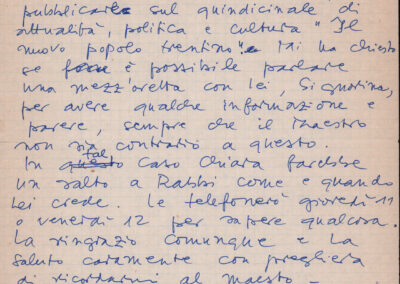 pubblicare sul quindicinale di
attualità, politica e cultura "Il
nuovo popolo trentino". Mi ha chiesto
se è possibile parlare
una mezz'oretta con lei, Signorina,
per avere qualche informazione e
parere, sempre che il Maestro
non sia contrario a questo.
In tal caso Chiara farebbe
un salto a Rabbi come e quando
Lei crede. Le telefonerò giovedì 11
o venerdì 12 per sapere qualcosa.
La ringrazio comunque e La
saluto caramente con preghiera
di ricordarmi al Maestro -